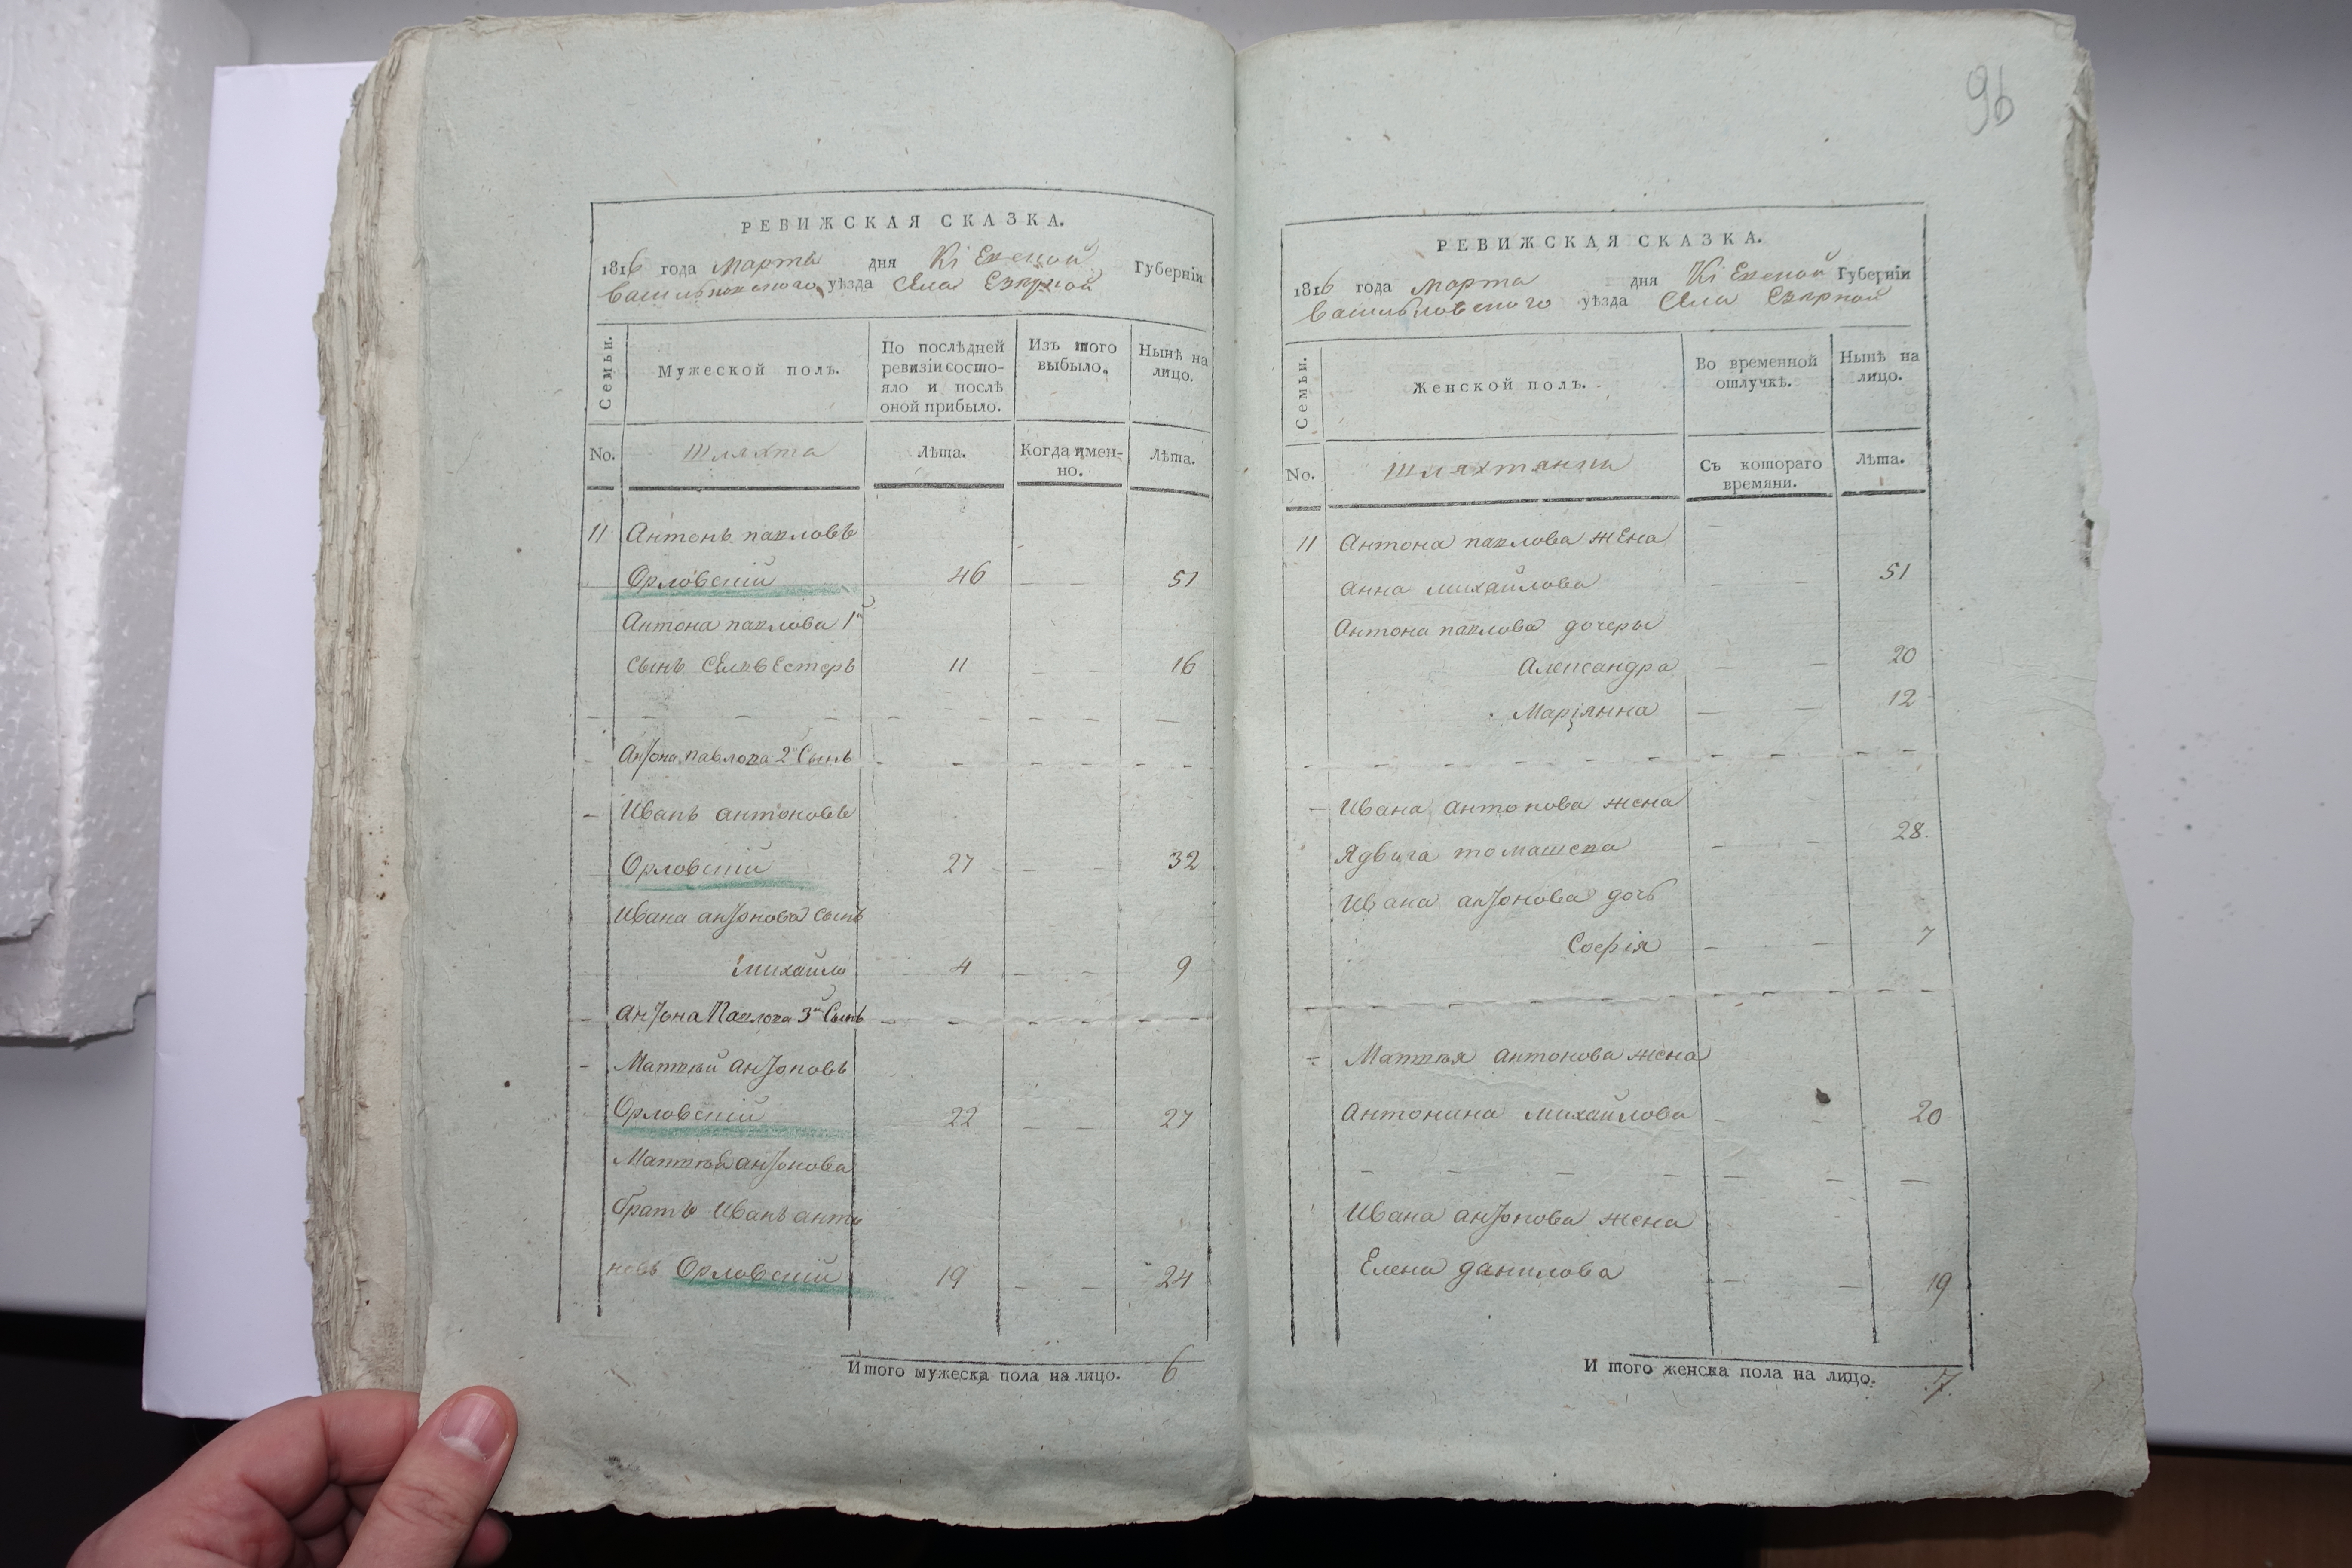 РЕВИЖСКАЯ СКАЗКА.
1816 года марта дня Кіевской Губерніи
васильковского уѣзда села Езерной
Семьи.
Мужеской полъ.
По послѣдней
ревизіи состо-
яло и послѣ
оной прибыло.
Изъ того
выбыло.
Нынѣ на
лицо.
No.
Шляхта
Лѣта.
Когда имен-
но.
Лѣта.
11 Антонъ павловъ
Орловскій 46 — — 51
Антона павлова 1й
сынъ Селвестеръ 11 — — 16
Антона павлова 2й Сынъ
Иванъ антоновъ
Орловскій 27 — — 32
Ивана антонова сынъ
михайло 4 — — 9
Антона Павлова 3й Сынъ
Маттѣй антоновъ
Орловскій 22 — — 27
Маттѣя антонова
братъ Иванъ анто
новъ Орловскій 19 — — 24
Итого мужеска пола на лицо. 6
96
РЕВИЖСКАЯ СКАЗКА.
1816 года марта дня Кіевской Губерніи
васильковского уѣзда села Езерной
Семьи.
Женской полъ.
Во временной
отлучкѣ.
Нынѣ на
лицо.
No.
шляхтянки
Съ котораго
времяни.
Лѣта.
11 Антона павлова жена
анна михайлова — — 51
Антона павлова дочеры
Александра — — 20
Маріянна — — 12
Ивана антонова жена
Ядвига томашева — — 28.
Ивана антонова дочь
Софія — — 7
Маттѣя антонова жена
антонина михайлова — — 20
Ивана антонова жена
Елена данилова — — 19
Итого женска пола на лицо. 7.